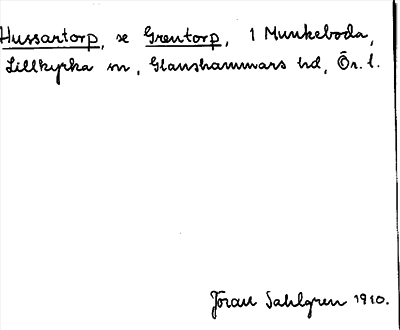 Hussartorp, se Grentorp, 1 Munkeboda,
Lillkyrka sn, Glanshammars hd, Ör. l.
Jöran Sahlgren 1910.